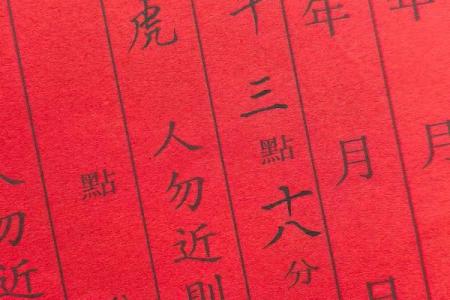 年月
年月日
十三點十八分
虎人勿近則
點
人勿近